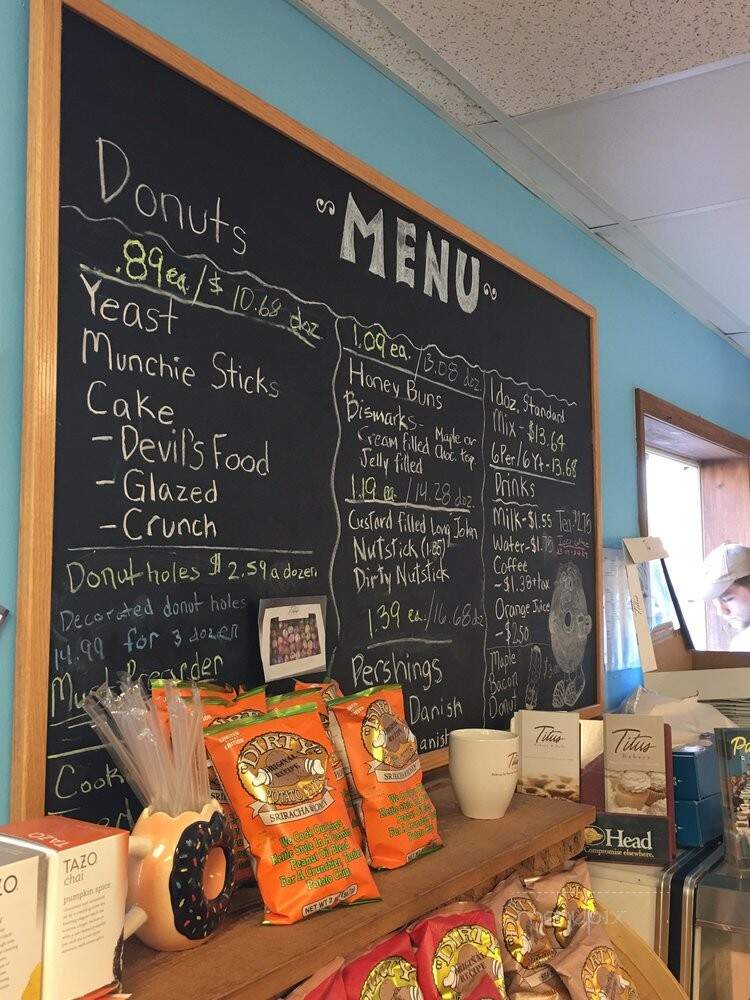 Donuts
MENU
.89 ea. / $10.68 doz
Yeast
Munchie Sticks
Cake
- Devil's Food
- Glazed
- Crunch
Donut holes $2.59 a dozen
Decorated donut holes
14.99 for 3 dozen
Must Preorder
1.09 ea. / 13.08 doz
Honey Buns
Bismarks - Maple or
Cream filled Choc. top
Jelly filled
1.19 ea. / 14.28 doz.
Custard filled Long John
Nutstick (1.85)
Dirty Nutstick
1.39 ea. / 16.68 doz
Pershings
Danish
anish
1 doz. Standard
Mix - $13.64
6 Per/6 Yt - 13.68
Drinks
Milk - $1.55 Tea
Water - $1.75
Coffee
- $1.38 + tax
Orange Juice
- $2.50
Maple
Bacon
Donut
DIRTY
ORIGINAL
RECIPE
POTATO
SRIRACHA HONEY
We Cook Our Chips
Kettle Style In
Peanut Oil
For A Crunchier
Potato Chip
NET WT 2
TAZO
TAZO
chai
pumpkin spice
Titus
Titus
Bakery
Head
Compromise elsewhere.
DIRTY
ORIGINAL
RECIPE
menupix